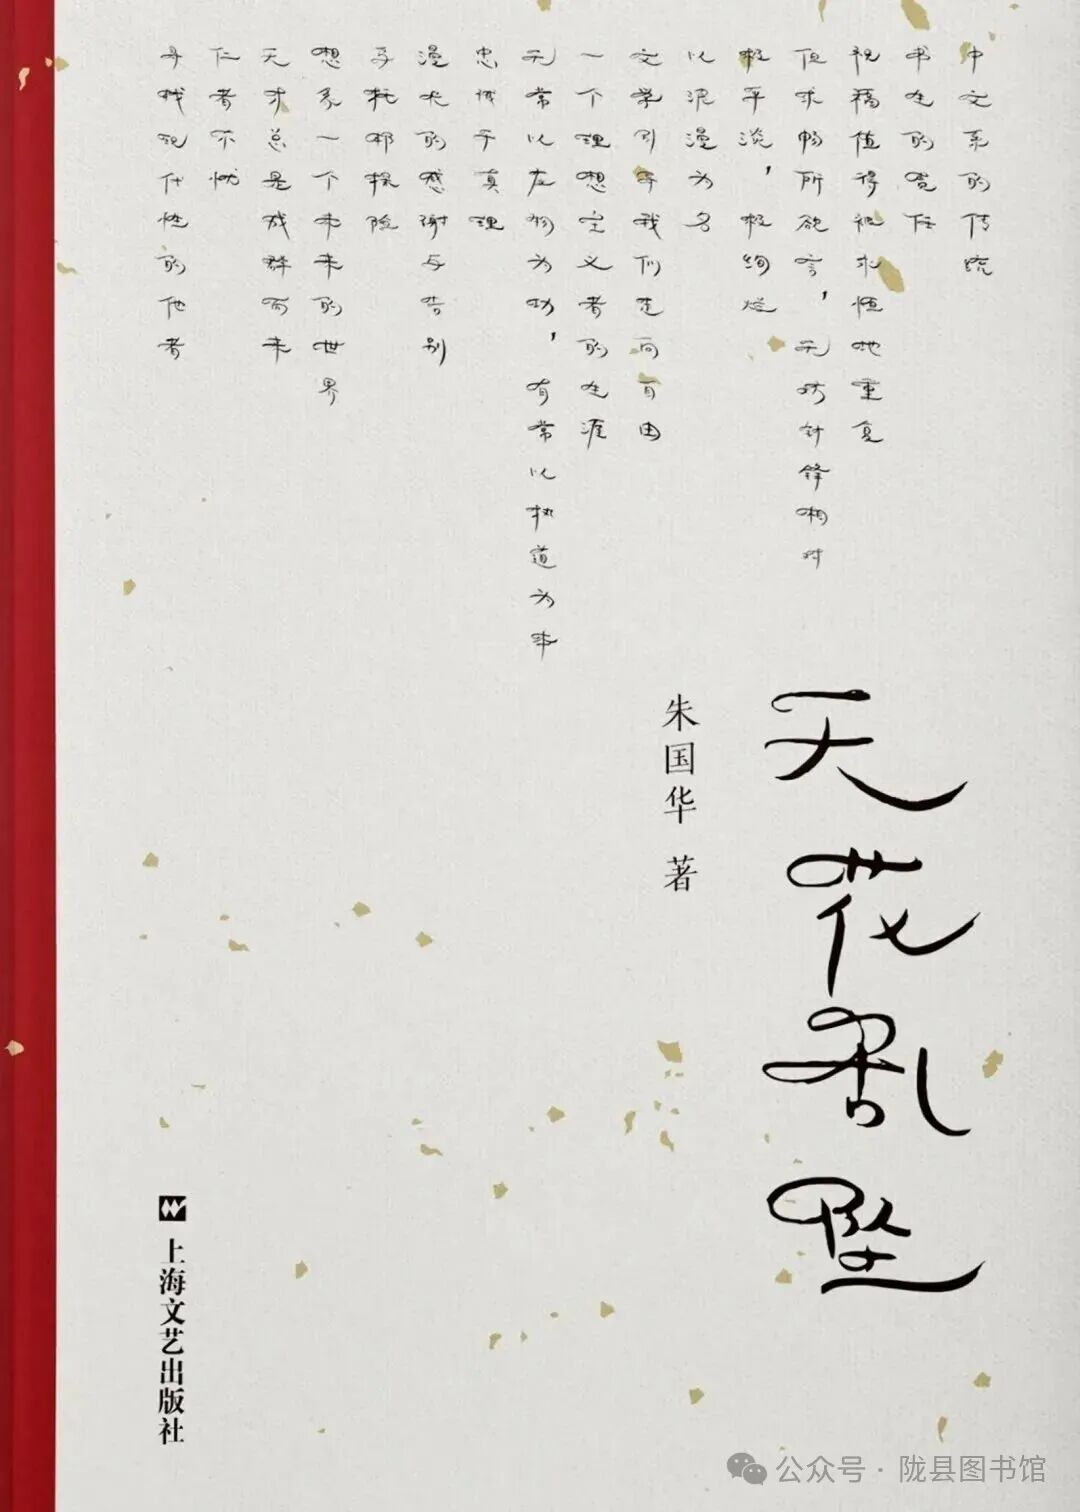 中文系的传统
书生的责任
祝福值得被永恒地重复
但求畅所欲言，无妨针锋相对
极平淡，极绚烂
以浪漫为名
文学引导我们走向自由
一个理想主义者的生涯
无常以应物为功，有常以执道为本
忠诚于真理
漫长的感谢与告别
乌托邦探险
想象一个未来的世界
天才总是成群而来
仁者不忧
寻找现代性的他者
天花乱坠
朱国华 著
上海文艺出版社
公众号·陇县图书馆